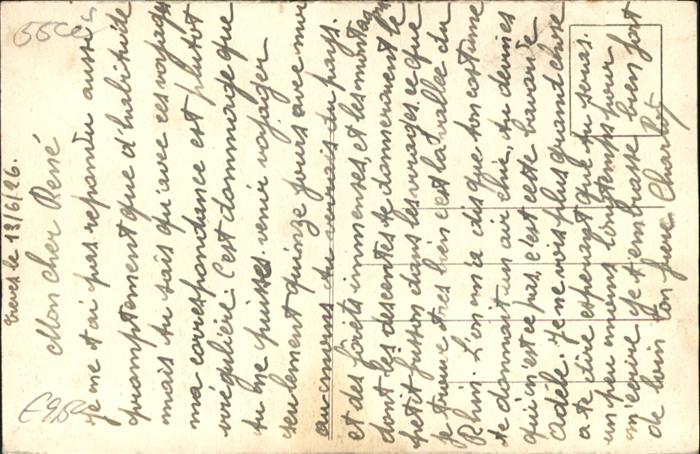 Trèves le 13/6/26.
Mon cher René
Je ne t'ai pas répondu aussi
promptement que d'habitude
mais tu sais qu'avec ces voyages
ma correspondance est plutôt
irrégulière. C'est dommage que
tu ne puisses venir voyager
seulement quinze jours avec moi
au moins tu verrais du pays.
et des forêts immenses, et les montagnes
dont les descentes te donneraient le
petit frisson dans les virages. ce que
je trouve très bien c'est la vallée du
Rhin. L'on m'a dis que ton costume
te donnait un air chic, tu devines
qui n'est ce pas, c'est cette bavarde
Adèle. Je ne vois plus grand chose
a te dire espérant que tu seras
un peu moins longtemps pour
m'écrire je t'embrasse bien fort
de loin ton frère Charlot
55cc
£9,50